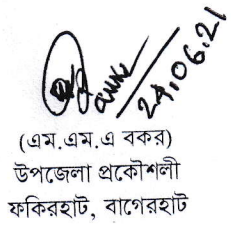 24.06.21
(এম.এম.এ বকর)
উপজেলা প্রকৌশলী
ফকিরহাট, বাগেরহাট